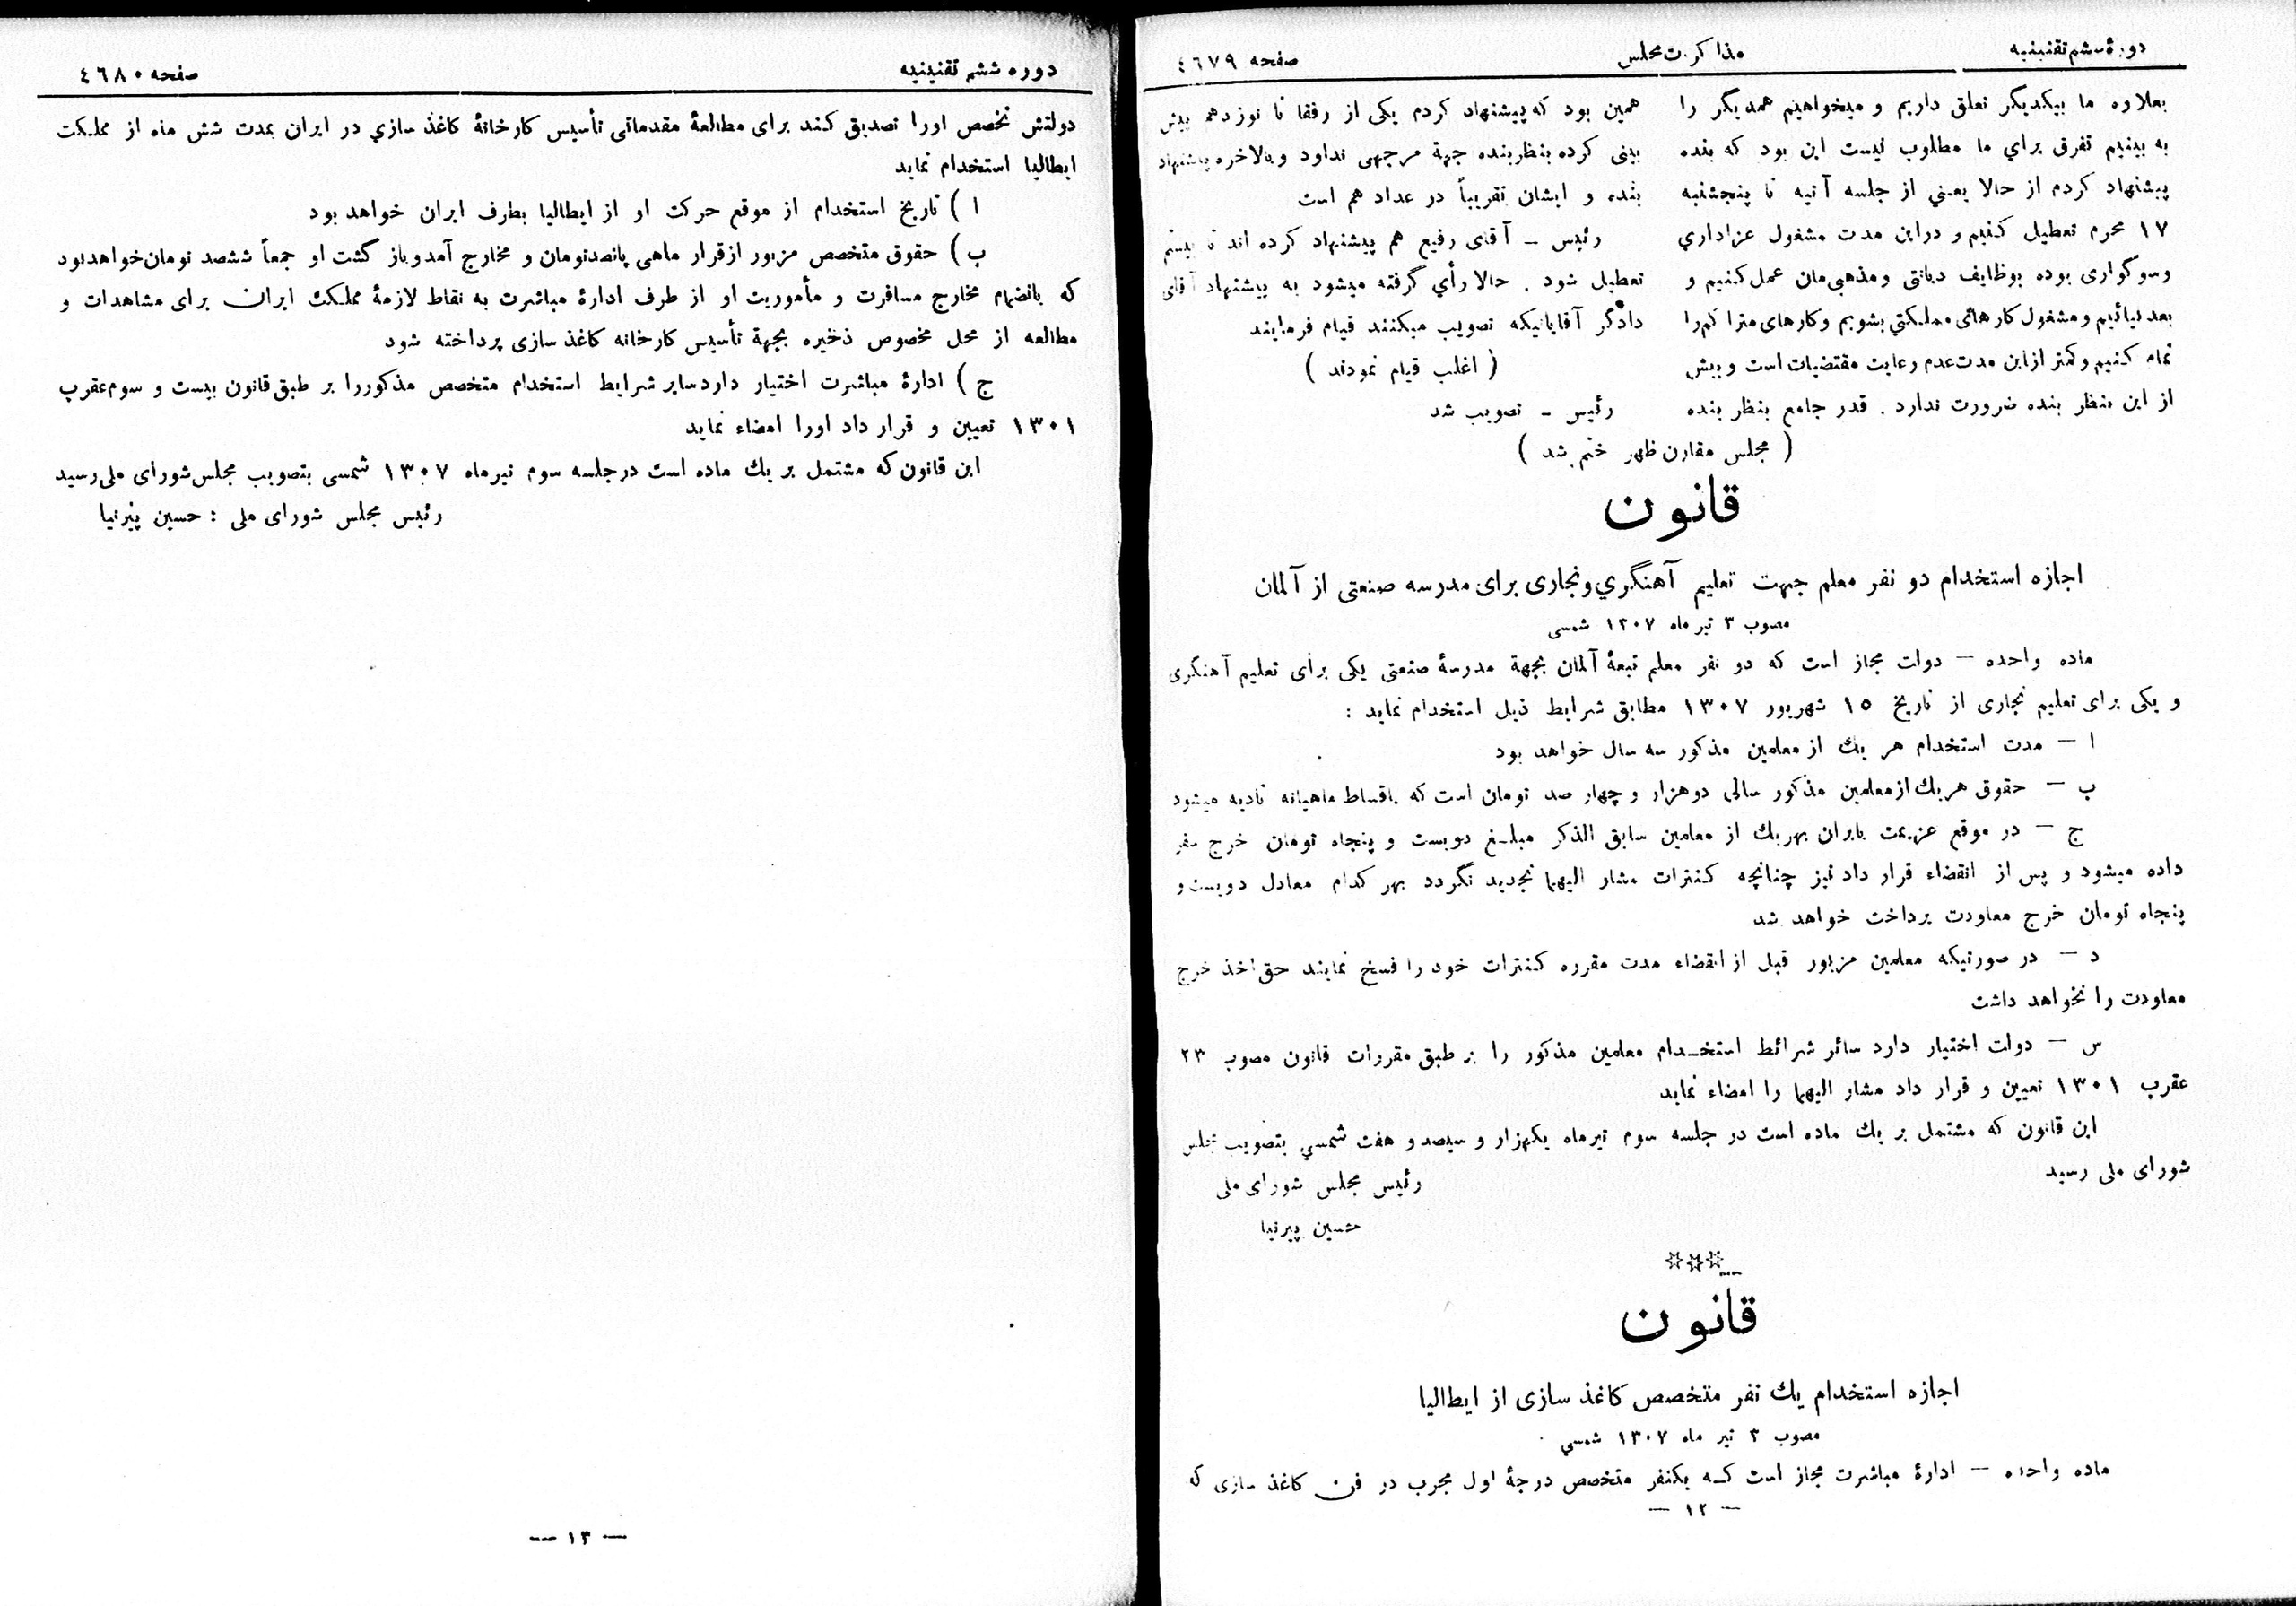 دورهٔ ششم تقنینیه
مذاکرات مجلس
صفحه ٤٦٧٩
بعلاوه ما بیکدیگر تعلق داریم و میخواهیم همدیگر را
به بینیم تفرق براي ما مطلوب نیست این بود که بنده
پیشنهاد کردم از حالا یعني از جلسه آتیه تا پنجشنبه
١٧ محرم تعطیل کنیم و دراین مدت مشغول عزاداري
وسوگواری بوده بوظایف دیانتی ومذهبی‌مان عمل کنیم و
بعد بیائیم و مشغول کارهائی مملکتي بشویم وکارهای متراکم را
تمام کنیم وکمتر ازاین مدت عدم رعایت مقتضیات است وبیش
از این بنظر بنده ضرورت ندارد . قدر جامع بنظر بنده
همین بود که پیشنهاد کردم یکی از رفقا تا نوزدهم پیش
بینی کرده بنظر بنده جهة مرجهی نداود وبالاخره پیشنهاد
بنده و ایشان تقریباً در عداد هم است
رئیس ـ آقای رفیع هم پیشنهاد کرده اند تا بیستم
تعطیل شود . حالا رأي گرفته میشود به پیشنهاد آقای
دادگر آقایانیکه تصویب میکنند قیام فرمایند
( اغلب قیام نمودند )
رئیس ـ تصویب شد
( مجلس مقارن ظهر ختم شد )
قانون
اجازه استخدام دو نفر معلم جهت تعلیم آهنگري ونجاری برای مدرسه صنعتی از آلمان
مصوب ٣ تیر ماه ١٣٠٧ شمسی
ماده واحده — دولت مجاز است که دو نفر معلم تبعهٔ آلمان بجهة مدرسهٔ صنعتی یکی برای تعلیم آهنگری
و یکی برای تعلیم نجاری از تاریخ ١٥ شهریور ١٣٠٧ مطابق شرایط ذیل استخدام نماید :
ا — مدت استخدام هر یك از معلمین مذکور سه سال خواهد بود
ب — حقوق هریك ازمعلمین مذکور سالی دوهزار و چهار صد تومان است که باقساط ماهیانه تادیه میشود
ج — در موقع عزیمت بایران بهریك از معلمین سابق الذکر مبلـغ دویست و پنجاه تومان خرج سفر
داده میشود و پس از انقضاء قرار داد نیز چنانچه کنترات مشار الیهما تجدید نگردد بهر کدام معادل دویست و
پنجاه تومان خرج معاودت پرداخت خواهد شد
د — در صورتیکه معلمین مزبور قبل از انقضاء مدت مقرره کنترات خود را فسخ نمایند حق اخذ خرج
معاودت را نخواهد داشت
س — دولت اختیار دارد سائر شرائط استخـدام معلمین مذکور را بر طبق مقررات قانون مصوب ٢٣
عقرب ١٣٠١ تعیین و قرار داد مشار الیهما را امضاء نماید
این قانون که مشتمل بر یك ماده است در جلسه سوم تیرماه یکهزار و سیصد و هفت شمسي بتصویب مجلس
شورای ملی رسید
رئیس مجلس شورای ملی
حسین پیرنیا
***
قانون
اجازه استخدام یك نفر متخصص کاغذ سازی از ایطالیا
مصوب ٣ تیر ماه ١٣٠٧ شمسي
ماده واحده — ادارهٔ مباشرت مجاز است کـه یکنفر متخصص درجهٔ اول مجرب در فن کاغذ سازی که
— ١٢ —
دوره ششم تقنینیه
صفحه ٤٦٨٠
دولتش تخصص اورا تصدیق کند برای مطالعهٔ مقدماتی تأسیس کارخانهٔ کاغذ سازي در ایران بمدت شش ماه از مملکت
ایطالیا استخدام نماید
ا ) تاریخ استخدام از موقع حرکت او از ایطالیا بطرف ایران خواهد بود
ب ) حقوق متخصص مزبور ازقرار ماهی پانصدتومان و مخارج آمدوباز گشت او جمعاً ششصد تومان خواهدبود
که بانضمام مخارج مسافرت و مأموریت او از طرف ادارهٔ مباشرت به نقاط لازمهٔ مملکت ایران برای مشاهدات و
مطالعه از محل مخصوص ذخیره بجهة تأسیس کارخانه کاغذ سازی پرداخته شود
ج ) ادارهٔ مباشرت اختیار دارد سایر شرایط استخدام متخصص مذکوررا بر طبق قانون بیست و سوم عقرب
١٣٠١ تعیین و قرار داد اورا امضاء نماید
این قانون که مشتمل بر یك ماده است درجلسه سوم تیرماه ١٣٠٧ شمسی بتصویب مجلس شورای ملی رسید
رئیس مجلس شورای ملی : حسین پیرنیا
— ١٣ —